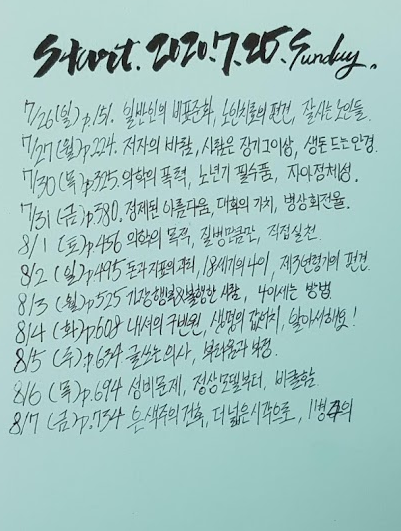 Start. 2020.7.25. Sunday.
7/26(일)p.151. 일반인의 비표준화, 노인치료의 편견, 잘사는 노인들.
7/27(월)p.224. 저자의 바람, 사람은 장기 그 이상, 생동 드는 안경.
7/30(목)p.325. 의학의 폭력, 노년기 필수품, 자아정체성.
7/31(금)p.380. 정제된 아름다움, 대화의 가치, 병상회전율.
8/1 (토)p.456 의학의 목적, 질병만물관, 직접실천.
8/2 (일)p.495 돈과 지표의 괴리, 18세기의 나이, 제3연령기의 편견.
8/3 (월)p.525 가장 행복&불행한 사람, 나이세는 방법
8/4 (화)p608 내시의 구반원, 생명의 값어치, 알아서해요!
8/5 (수)p.634 글쓰는 의사, 부정.
8/6 (목)p.694 성비문제, 정상모델부터, 비클함
8/7 (금)p.734 은색주의 건축, 더 넓은 시각으로,